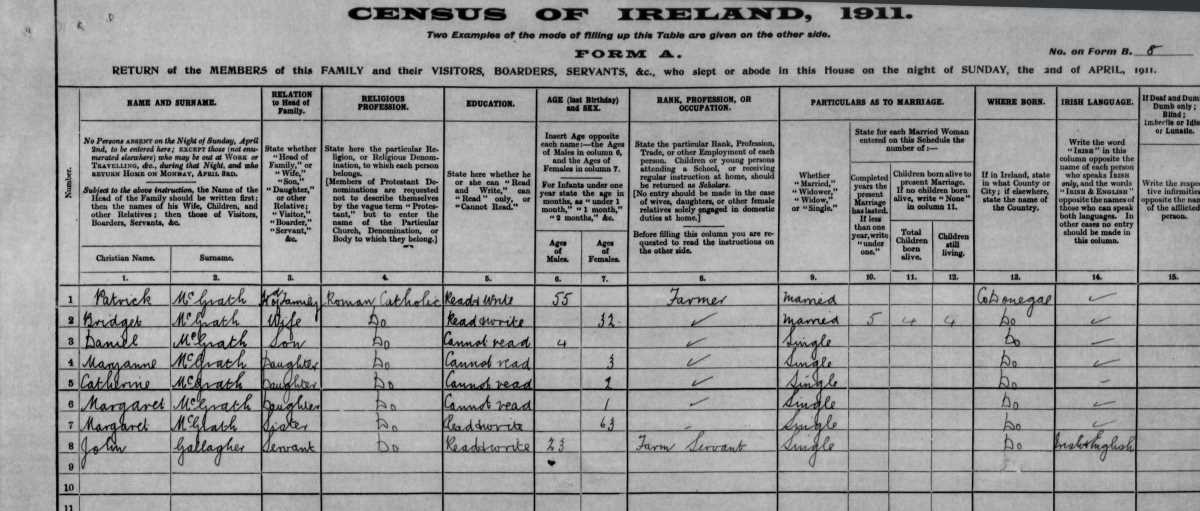 CENSUS OF IRELAND, 1911.
Two Examples of the mode of filling up this Table are given on the other side.
FORM A.
No. on Form B. 8
RETURN of the MEMBERS of this FAMILY and their VISITORS, BOARDERS, SERVANTS, &c., who slept or abode in this House on the night of SUNDAY, the 2nd of APRIL, 1911.
Number.
NAME AND SURNAME.
No Persons ABSENT on the Night of Sunday, April
2nd, to be entered here; EXCEPT those (not enu-
merated elsewhere) who may be out at WORK or
TRAVELLING, &c., during that Night, and who
RETURN HOME ON MONDAY, APRIL 3RD.
Subject to the above instruction, the Name of the
Head of the Family should be written first;
then the names of his Wife, Children, and
other Relatives; then those of Visitors,
Boarders, Servants, &c.
Christian Name. Surname.
RELATION
to Head of
Family.
State whether
"Head of
Family," or
"Wife,"
"Son,"
"Daughter,"
or other
Relative;
"Visitor,"
"Boarder,"
"Servant,"
&c.
RELIGIOUS
PROFESSION.
State here the particular Re-
ligion, or Religious Denom-
ination, to which each person
belongs.
[Members of Protestant De-
nominations are requested
not to describe themselves
by the vague term "Protes-
tant," but to enter the
name of the Particular
Church, Denomination, or
Body to which they belong.]
EDUCATION.
State here whether he
or she can "Read
and Write," can
"Read" only, or
"Cannot Read."
AGE (last Birthday)
and SEX.
Insert Age opposite
each name:—the Ages
of Males in column 6,
and the Ages of
Females in column 7.
For Infants under one
year state the age in
months, as "under 1
month," "1 month,"
"2 months," &c.
Ages
of
Males.
Ages
of
Females.
RANK, PROFESSION, OR
OCCUPATION.
State the particular Rank, Profession,
Trade, or other Employment of each
person. Children or young persons
attending a School, or receiving
regular instruction at home, should
be returned as Scholars.
[No entry should be made in the case
of wives, daughters, or other female
relatives solely engaged in domestic
duties at home.]
Before filling this column you are re-
quested to read the instructions on
the other side.
PARTICULARS AS TO MARRIAGE.
Whether
"Married,"
"Widower,"
"Widow,"
or "Single."
State for each Married Woman
entered on this Schedule the
number of:—
Completed
years the
present
Marriage
has lasted.
If less
than one
year, write
"under
one."
Children born alive to
present Marriage.
If no children born
alive, write "None"
in column 11.
Total
Children
born
alive.
Children
still
living.
WHERE BORN.
If in Ireland, state
in what County or
City; if elsewhere,
state the name of
the Country.
IRISH LANGUAGE.
Write the word
"IRISH" in this
column opposite the
name of each person
who speaks IRISH
only, and the words
"IRISH & ENGLISH"
opposite the names of
those who can speak
both languages. In
other cases no entry
should be made in
this column.
If Deaf and Dumb
Dumb only;
Blind;
Imbecile or Idio
or Lunatic.
Write the respec
tive infirmities
of the afflicted
person.
1. 2. 3. 4. 5. 6. 7. 8. 9. 10. 11. 12. 13. 14. 15.
1 Patrick McGrath Hd of Family Roman Catholic Read & Write 55 Farmer Married Co Donegal
2 Bridget McGrath Wife Do Read & write 32 Married 5 4 4 Do
3 Daniel McGrath Son Do Cannot read 4 Single Do
4 Maryanne McGrath Daughter Do Cannot read 3 Single Do
5 Catherine McGrath Daughter Do Cannot read 2 Single Do
6 Margaret McGrath Daughter Do Cannot read 1 Single Do
7 Margaret McGrath Sister Do Read & write 63 Single Do
8 John Gallagher Servant Do Read & write 23 Farm Servant Single Do Irish & English
9
10
11